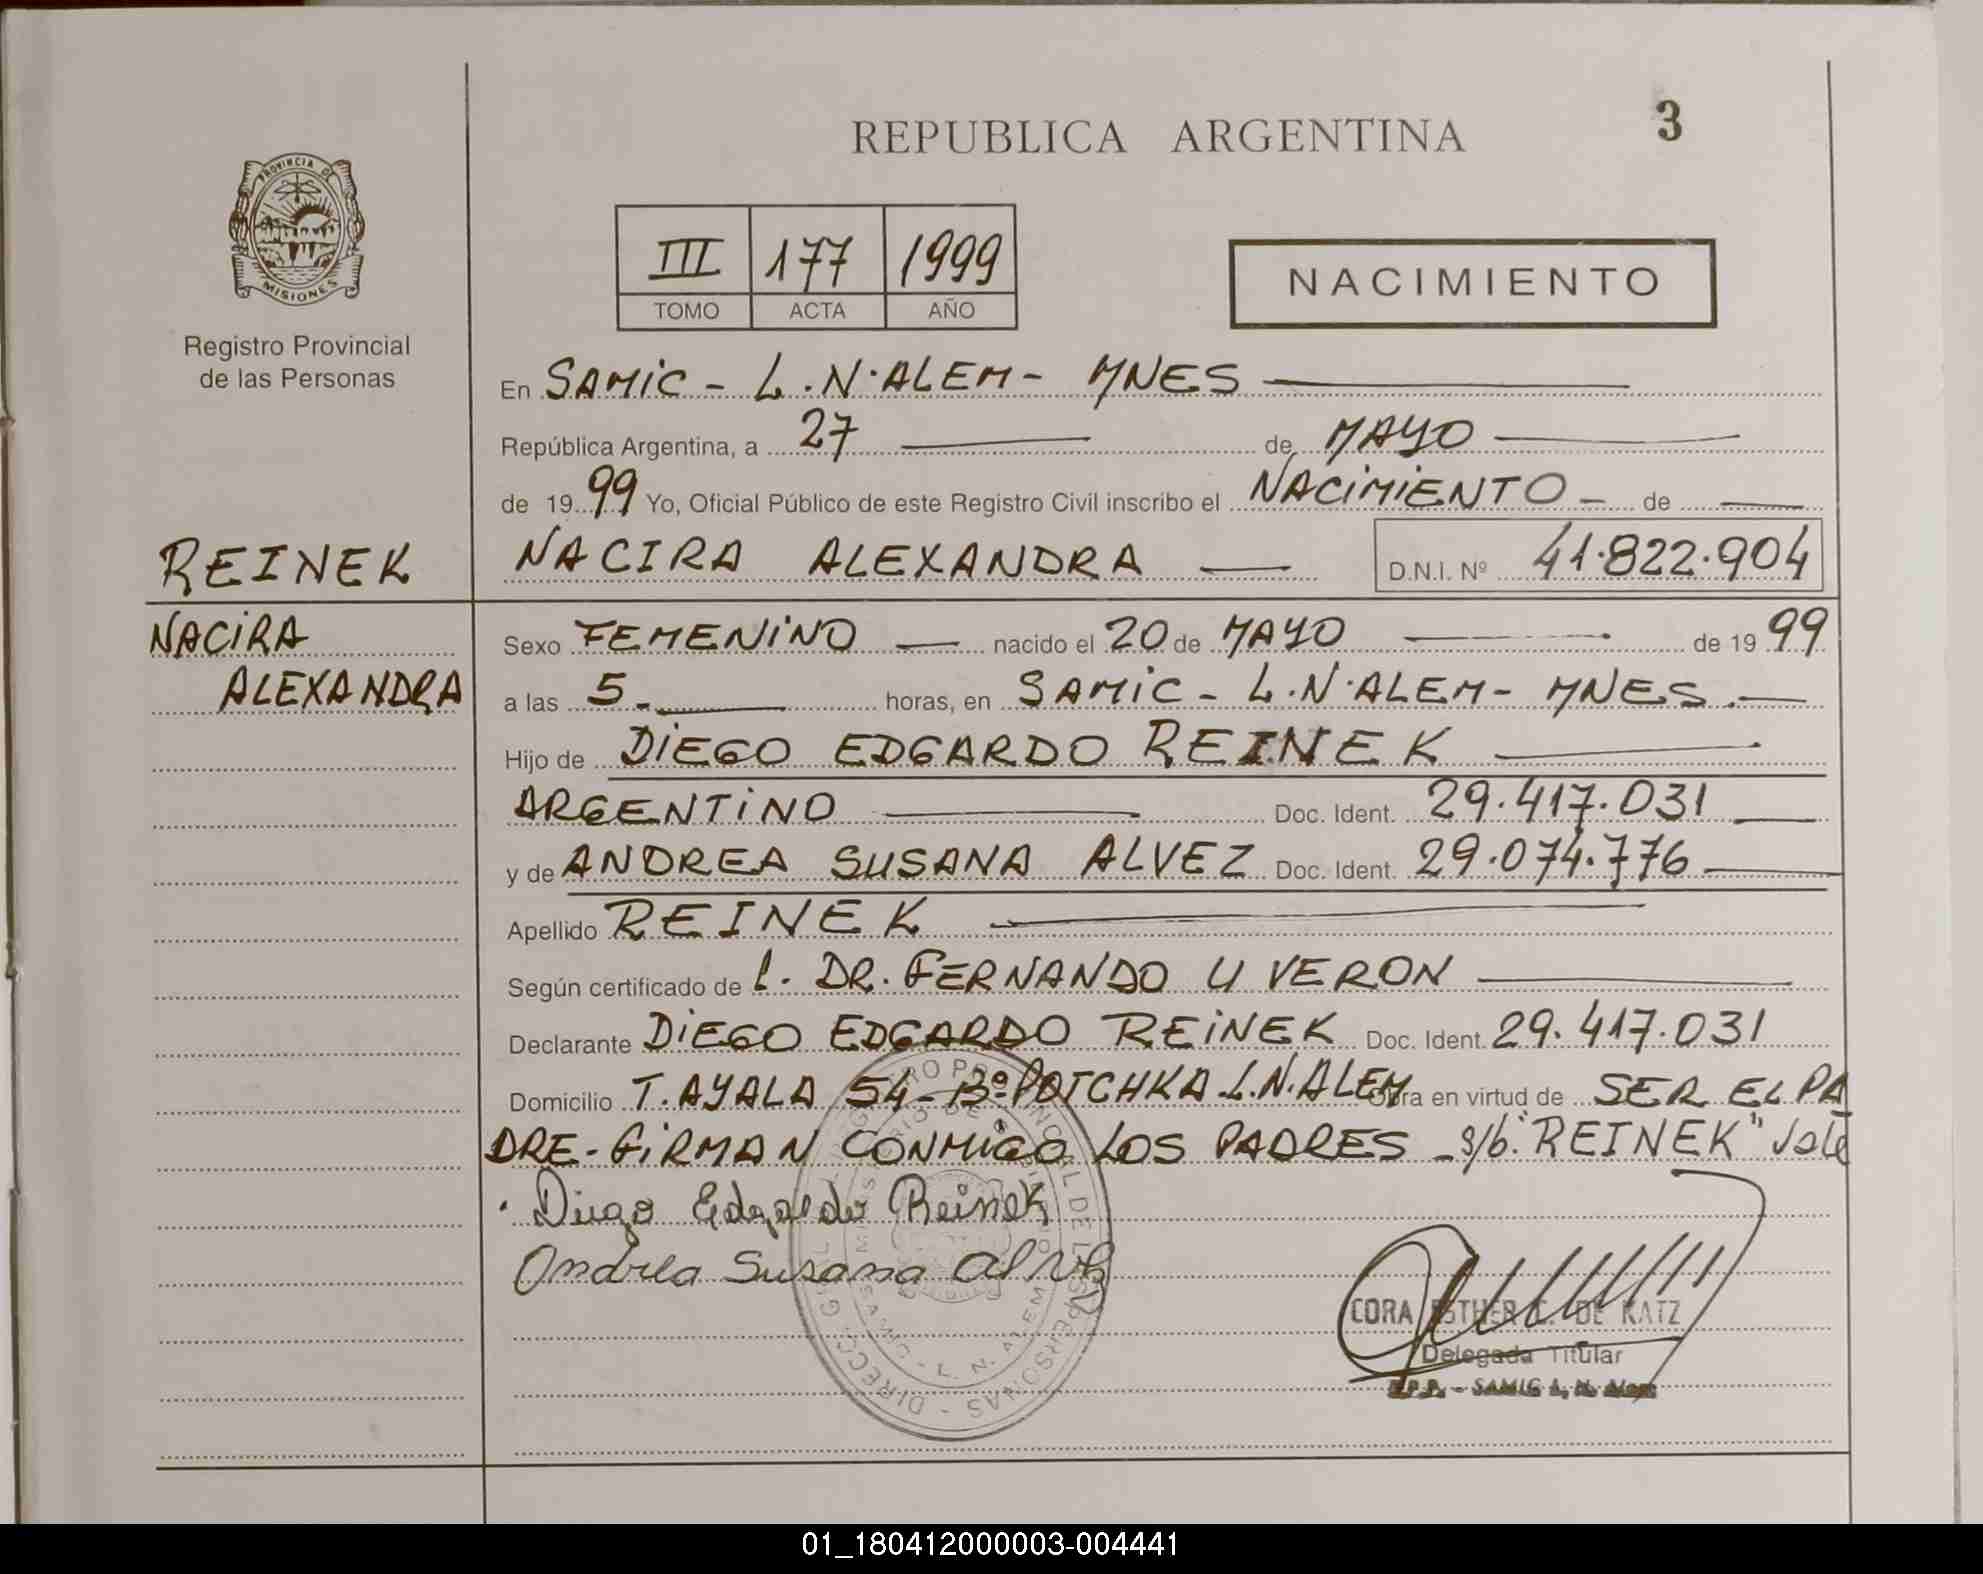 REPUBLICA ARGENTINA
3
PROVINCIA DE
MISIONES
Registro Provincial
de las Personas
III 177 1999
TOMO ACTA AÑO
NACIMIENTO
En SAMIC - L.N.ALEM - MNES
República Argentina, a 27 de MAYO
de 1999 Yo, Oficial Público de este Registro Civil inscribo el NACIMIENTO - de
REINEK
NACIRA ALEXANDRA D.N.I. Nº 41.822.904
NACIRA
ALEXANDRA
Sexo FEMENINO nacido el 20 de MAYO de 1999
a las 5.- horas, en SAMIC - L.N.ALEM - MNES.
Hijo de DIEGO EDGARDO REINEK
ARGENTINO Doc. Ident. 29.417.031
y de ANDREA SUSANA ALVEZ Doc. Ident. 29.074.776
Apellido REINEK
Según certificado de l. DR. FERNANDO U VERON
Declarante DIEGO EDGARDO REINEK Doc. Ident. 29.417.031
Domicilio T. AYALA 54 - Bº POTCHKA L.N.ALEM Obra en virtud de SER EL PA
DRE - FIRMAN CONMIGO LOS PADRES - s/b: "REINEK" Vale
Diego Edgardo Reinek
Andrea Susana Alvez
CORA ESTHER C. DE KATZ
Delegada Titular
R.P.P. - SAMIC L. N. Alem
01_180412000003-004441